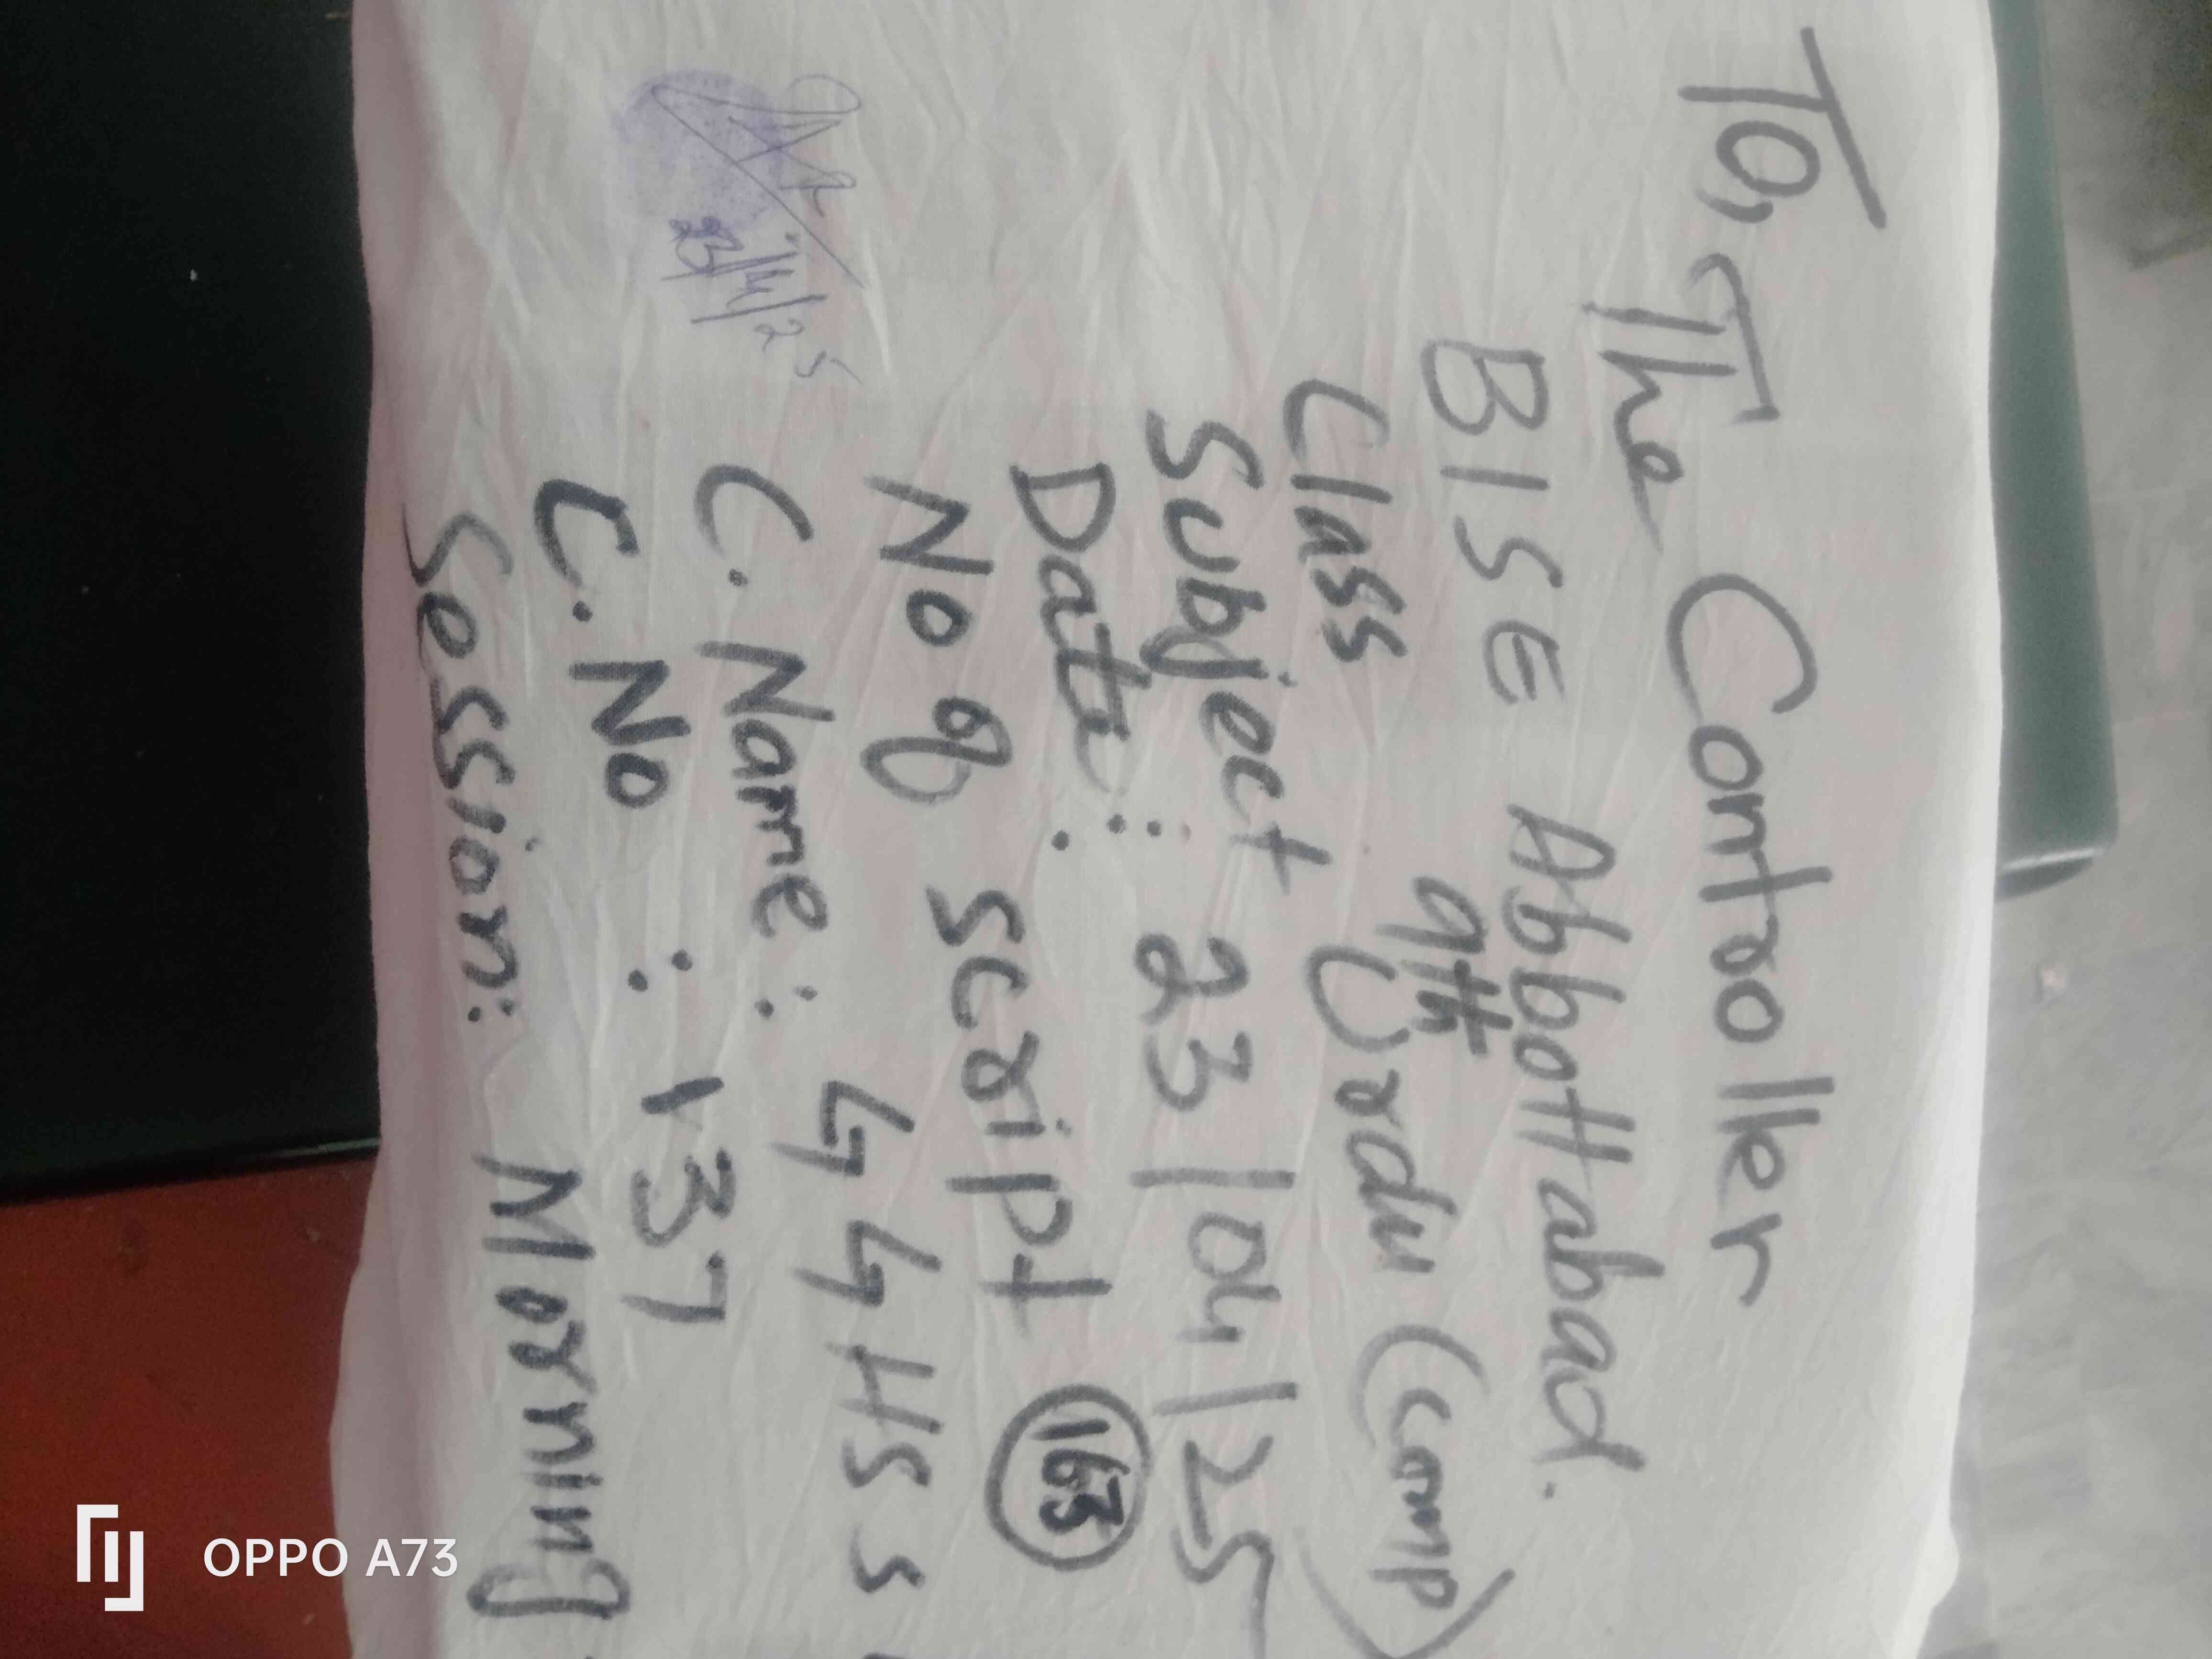 To, The Controller
BISE Abbottabad.
Class 9th
Subject Urdu (Comp)
Date: 23/04/25
No of script 163
C. Name: GGHSS
C. No : 137
Session: Morning
23/4/25
OPPO A73